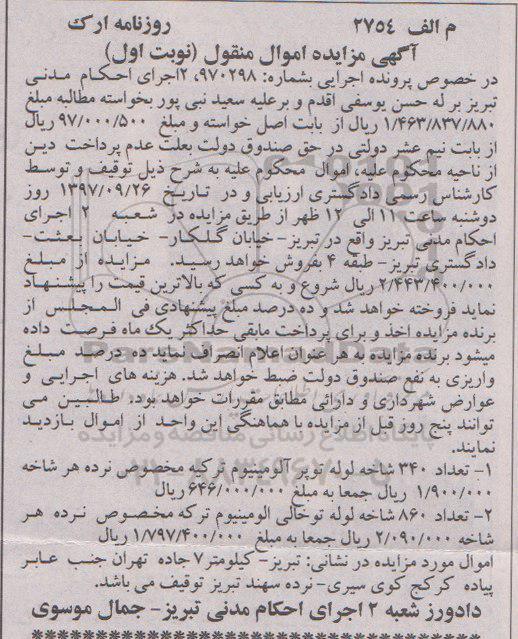 م الف ٢٧٥٤ روزنامه ارک
آگهی مزایده اموال منقول (نوبت اول)
در خصوص پرونده اجرایی بشماره: ٩٧٠٢٩٨، ٢اجرای احکام مدنی
تبریز بر له حسن یوسفی اقدم و برعلیه سعید نبی پور بخواسته مطالبه مبلغ
١/٤٦٣/٨٣٧/٨٨٠ ریال از بابت اصل خواسته و مبلغ ٩٧/٠٠٠/٥٠٠ ریال
از بابت نیم عشر دولتی در حق صندوق دولت بعلت عدم پرداخت دین
از ناحیه محکوم علیه، اموال محکوم علیه به شرح ذیل توقیف و توسط
کارشناس رسمی دادگستری ارزیابی و در تاریخ ١٣٩٧/٠٩/٢٦ روز
دوشنبه ساعت ١١ الی ١٢ ظهر از طریق مزایده در شعبه ٢ اجرای
احکام مدنی تبریز واقع در تبریز- خیابان گلکار- خیابان بعثت-
دادگستری تبریز- طبقه ٤ بفروش خواهد رسید. مزایده از مبلغ
٢/٤٤٣/٤٠٠/٠٠٠ ریال شروع و به کسی که بالاترین قیمت را پیشنهاد
نماید فروخته خواهد شد و ده درصد مبلغ پیشنهادی فی المجلس از
برنده مزایده اخذ و برای پرداخت مابقی حداکثر یک ماه فرصت داده
میشود برنده مزایده به هر عنوان اعلام انصراف نماید ده درصد مبلغ
واریزی به نفع صندوق دولت ضبط خواهد شد. هزینه های اجرایی و
عوارض شهرداری و دارائی مطابق مقررات خواهد بود. طالبین می
توانند پنج روز قبل از مزایده با هماهنگی این واحد از اموال بازدید
نمایند.
١- تعداد ٣٤٠ شاخه لوله توپر آلومنیوم ترکیه مخصوص نرده هر شاخه
١/٩٠٠/٠٠٠ ریال جمعا به مبلغ ٦٤٦/٠٠٠/٠٠٠ ریال
٢- تعداد ٨٦٠ شاخه لوله توخالی الومینیوم ترکه مخصوص نرده هر
شاخه ٢/٠٩٠/٠٠٠ ریال جمعا به مبلغ ١/٧٩٧/٤٠٠/٠٠٠ ریال
اموال مورد مزایده در نشانی: تبریز- کیلومتر ٧ جاده تهران جنب عابر
پیاده کرکج کوی سیری- نرده سهند تبریز توقیف می باشد.
دادورز شعبه ٢ اجرای احکام مدنی تبریز- جمال موسوی